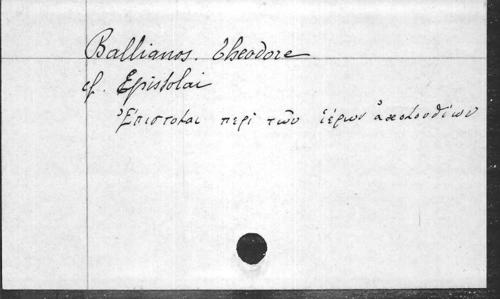 Ballianos. Theodore
cf. Epistolai
Ἐπιστολαι περὶ τῶν ἱέρων ἀκολουθίων